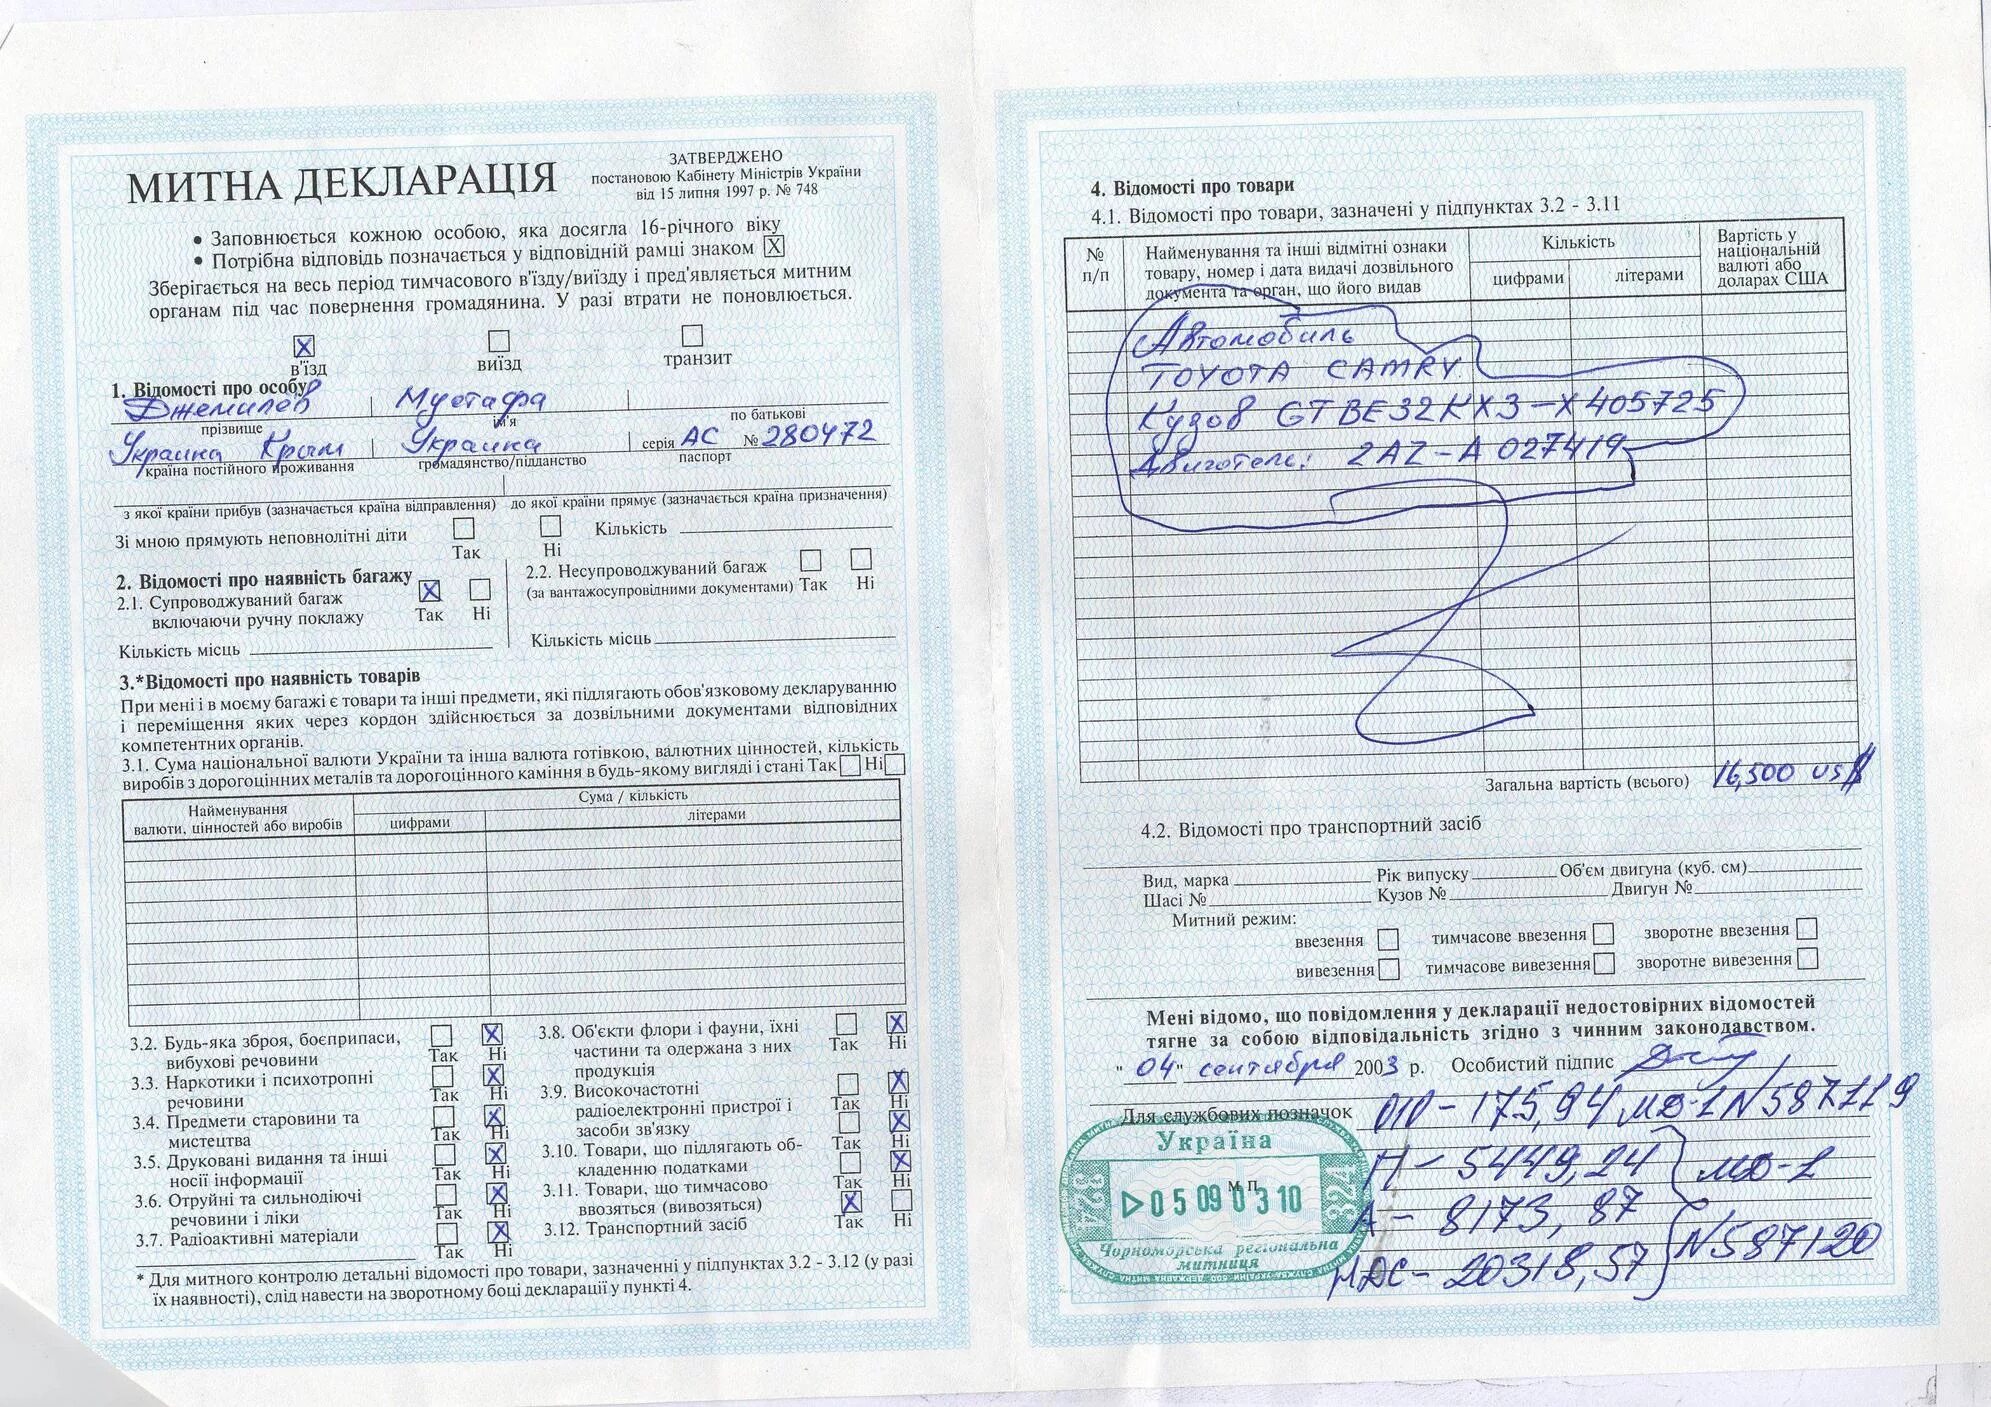 МИТНА ДЕКЛАРАЦІЯ
ЗАТВЕРДЖЕНО
постановою Кабінету Міністрів України
від 15 липня 1997 р. № 748
• Заповнюється кожною особою, яка досягла 16-річного віку
• Потрібна відповідь позначається у відповідній рамці знаком X
Зберігається на весь період тимчасового в'їзду/виїзду і пред'являється митним
органам під час повернення громадянина. У разі втрати не поновлюється.
X
в'їзд виїзд транзит
1. Відомості про особу
Джемилев Мустафа
прізвище ім'я по батькові
Украина Крым Украина серія АС № 280472
країна постійного проживання громадянство/підданство паспорт
з якої країни прибув (зазначається країна відправлення) до якої країни прямує (зазначається країна призначення)
Зі мною прямують неповнолітні діти Так Ні Кількість
2. Відомості про наявність багажу
2.1. Супроводжуваний багаж
включаючи ручну поклажу X Так Ні
Кількість місць
2.2. Несупроводжуваний багаж
(за вантажосупровідними документами) Так Ні
Кількість місць
3.*Відомості про наявність товарів
При мені і в моєму багажі є товари та інші предмети, які підлягають обов'язковому декларуванню
і переміщення яких через кордон здійснюється за дозвільними документами відповідних
компетентних органів.
3.1. Сума національної валюти України та інша валюта готівкою, валютних цінностей, кількість
виробів з дорогоцінних металів та дорогоцінного каміння в будь-якому вигляді і стані Так Ні
Найменування
валюти, цінностей або виробів
Сума / кількість
цифрами літерами
3.2. Будь-яка зброя, боєприпаси,
вибухові речовини Так X Ні
3.3. Наркотики і психотропні
речовини Так X Ні
3.4. Предмети старовини та
мистецтва Так X Ні
3.5. Друковані видання та інші
носії інформації Так X Ні
3.6. Отруйні та сильнодіючі
речовини і ліки Так X Ні
3.7. Радіоактивні матеріали Так X Ні
3.8. Об'єкти флори і фауни, їхні
частини та одержана з них
продукція Так X Ні
3.9. Високочастотні
радіоелектронні пристрої і
засоби зв'язку Так X Ні
3.10. Товари, що підлягають об-
кладенню податками Так X Ні
3.11. Товари, що тимчасово
ввозяться (вивозяться) Так X Ні
3.12. Транспортний засіб X Так Ні
* Для митного контролю детальні відомості про товари, зазначенні у підпунктах 3.2 - 3.12 (у разі
їх наявності), слід навести на зворотному боці декларації у пункті 4.
4. Відомості про товари
4.1. Відомості про товари, зазначені у підпунктах 3.2 - 3.11
№
п/п
Найменування та інші відмітні ознаки
товару, номер і дата видачі дозвільного
документа та орган, що його видав
Кількість
цифрами літерами
Вартість у
національній
валюті або
доларах США
Автомобиль
TOYOTA CAMRY
Кузов GTBE32KX3-X405725
Двигатель: 2AZ-A027419
Загальна вартість (всього) 16,500 US$
4.2. Відомості про транспортний засіб
Вид, марка Рік випуску Об'єм двигуна (куб. см)
Шасі № Кузов № Двигун №
Митний режим:
ввезення тимчасове ввезення зворотне ввезення
вивезення тимчасове вивезення зворотне вивезення
Мені відомо, що повідомлення у декларації недостовірних відомостей
тягне за собою відповідальність згідно з чинним законодавством.
"04" сентября 2003 р. Особистий підпис
Для службових позначок 010-175,94 МД-1 N587119
П-5449,24 МД-1
А-8173,87
НДС-20318,57 N587120
Україна
М П
324 05 09 03 10 324
Чорноморська регіональна
митниця